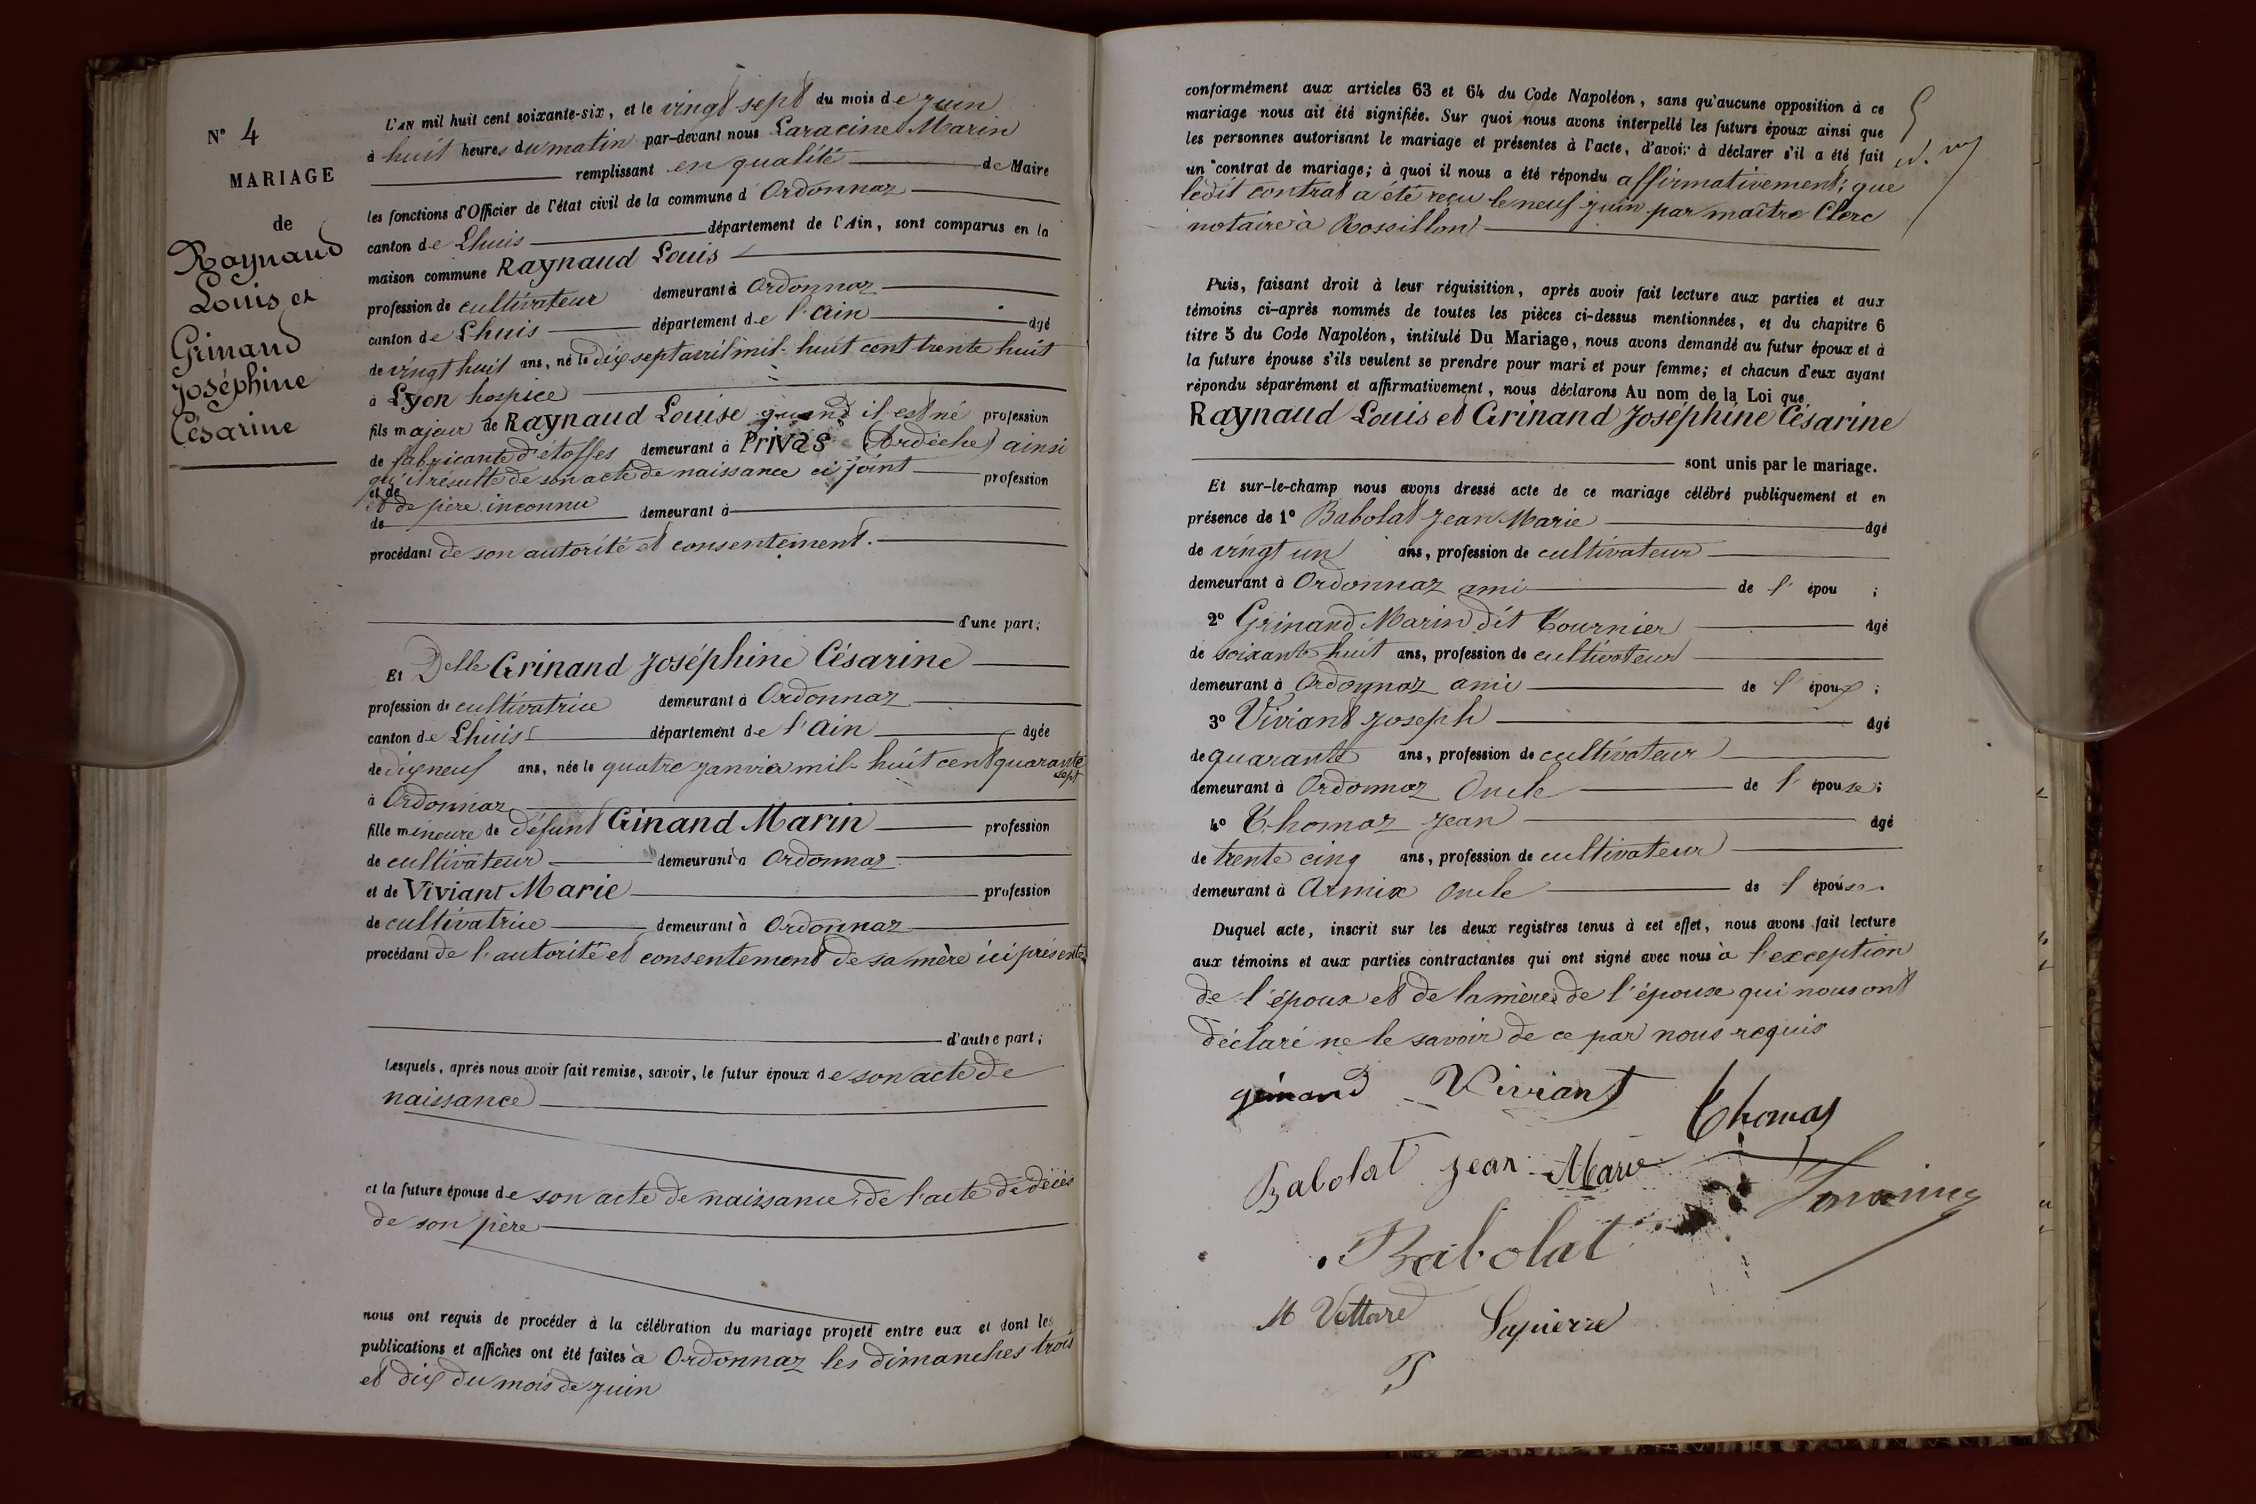 N° 4
MARIAGE
de
Raynaud
Louis et
Grinand
Joséphine
Césarine
L'AN mil huit cent soixante-six, et le vingt sept du mois de juin
à huit heures du matin par-devant nous Laracine Marin
remplissant en qualité de Maire
les fonctions d'Officier de l'état civil de la commune d Ordonnaz
canton de Lhuis département de l'Ain, sont comparus en la
maison commune Raynaud Louis
profession de cultivateur demeurant à Ordonnaz
canton de Lhuis département de l'Ain âgé
de vingt huit ans, né le dix sept avril mil huit cent trente huit
à Lyon hospice
fils majeur de Raynaud Louise quand il est né profession
de fabricante d'étoffes demeurant à Privas (Ardèche) ainsi
qu'il résulte de son acte de naissance ci joint profession
et de
et de père inconnu
de demeurant à
procédant de son autorité et consentement.
d'une part;
Et Delle Grinand Joséphine Césarine
profession de cultivatrice demeurant à Ordonnaz
canton de Lhuis département de l'Ain âgée
de dix neuf ans, née le quatre janvier mil huit cent quarante
sept
à Ordonnaz
fille mineure de défunt Ginand Marin profession
de cultivateur demeurant à Ordonnaz
et de Viviant Marie profession
de cultivatrice demeurant à Ordonnaz
procédant de l'autorité et consentement de sa mère ici présente
d'autre part;
Lesquels, après nous avoir fait remise, savoir, le futur époux de son acte de
naissance
et la future épouse de son acte de naissance, de l'acte de décès
de son père
nous ont requis de procéder à la célébration du mariage projeté entre eux et dont les
publications et affiches ont été faites à Ordonnaz les dimanches trois
et dix du mois de juin
conformément aux articles 63 et 64 du Code Napoléon, sans qu'aucune opposition à ce
mariage nous ait été signifiée. Sur quoi nous avons interpellé les futurs époux ainsi que
les personnes autorisant le mariage et présentes à l'acte, d'avoir à déclarer s'il a été fait
un contrat de mariage; à quoi il nous a été répondu affirmativement; que
ledit contrat a été reçu le neuf juin par maître Clerc
notaire à Rossillon
Puis, faisant droit à leur réquisition, après avoir fait lecture aux parties et aux
témoins ci-après nommés de toutes les pièces ci-dessus mentionnées, et du chapitre 6
titre 5 du Code Napoléon, intitulé Du Mariage, nous avons demandé au futur époux et à
la future épouse s'ils veulent se prendre pour mari et pour femme; et chacun d'eux ayant
répondu séparément et affirmativement, nous déclarons Au nom de la Loi que
Raynaud Louis et Grinand Joséphine Césarine
sont unis par le mariage.
Et sur-le-champ nous avons dressé acte de ce mariage célébré publiquement et en
présence de 1° Babolat Jean Marie âgé
de vingt un ans, profession de cultivateur
demeurant à Ordonnaz ami de l' épou ;
2° Grinand Marin dit Tournier âgé
de soixante huit ans, profession de cultivateur
demeurant à Ordonnaz ami de l' époux ;
3° Viviant Joseph âgé
de quarante ans, profession de cultivateur
demeurant à Ordonnaz Oncle de l' épouse ;
4° Thomaz Jean âgé
de trente cinq ans, profession de cultivateur
demeurant à Armix Oncle de l' épouse.
Duquel acte, inscrit sur les deux registres tenus à cet effet, nous avons fait lecture
aux témoins et aux parties contractantes qui ont signé avec nous à l'exception
de l'époux et de la mère de l'épouse qui nous ont
déclaré ne le savoir de ce par nous requis
grinand Viviant
Thomas
Babolat Jean Marie
Babolat
M Vettard Lapierre